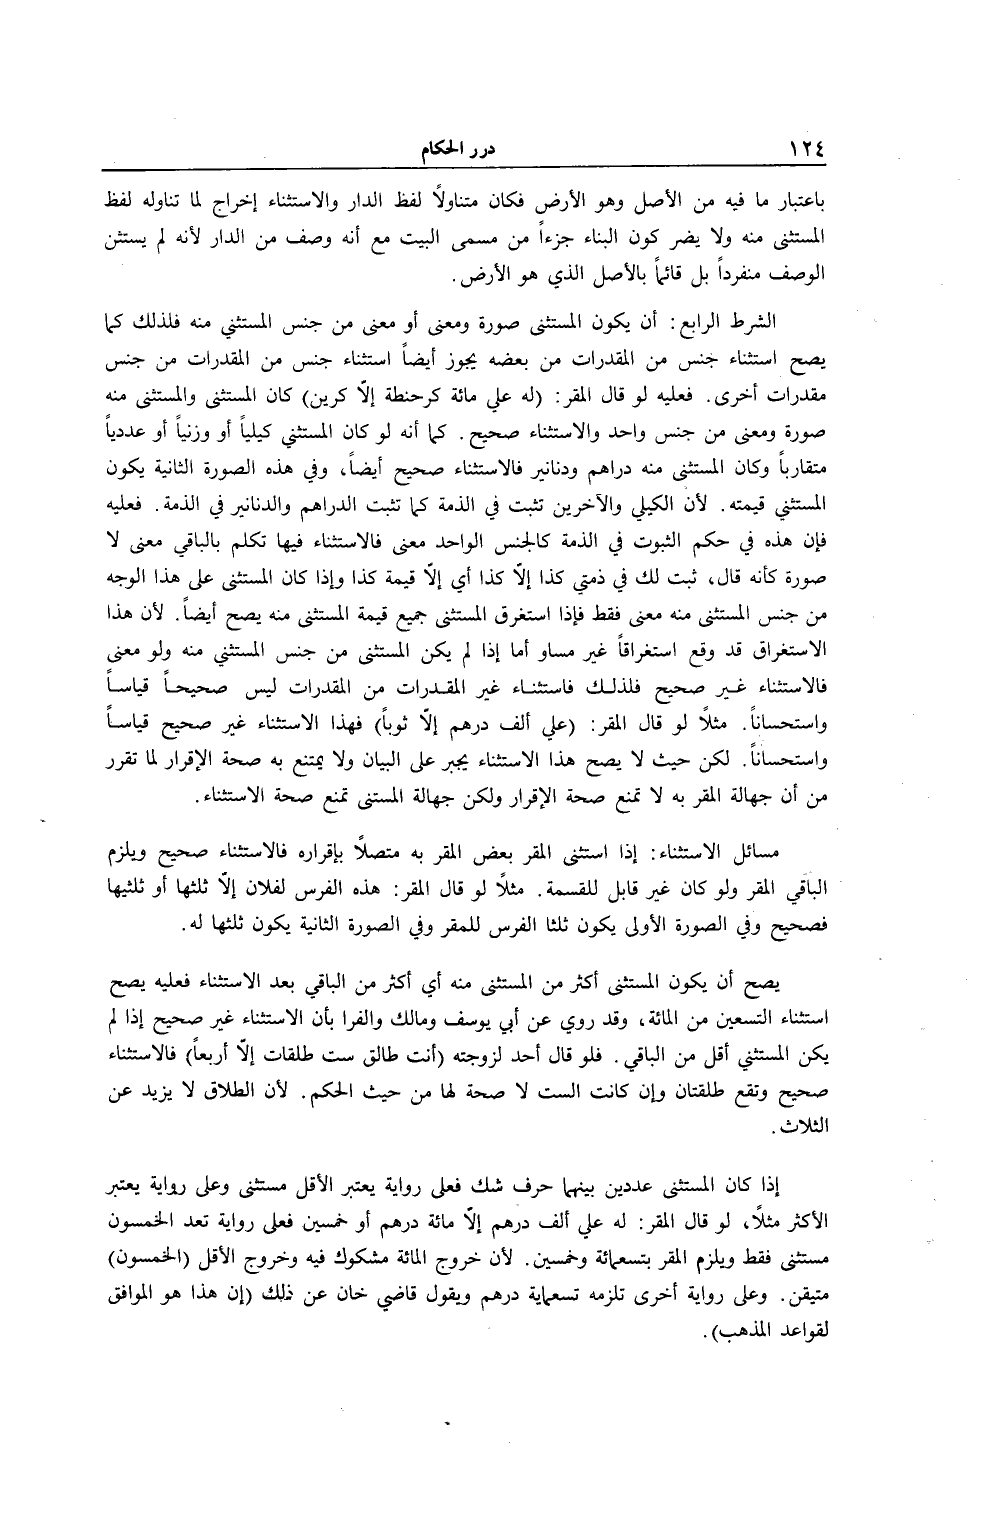 ١٢٤
درر الحكام
باعتبار ما فيه من الأصل وهو الأرض فكان متناولاً لفظ الدار والاستثناء إخراج لما تناوله لفظ
المستثنى منه ولا يضر كون البناء جزءاً من مسمى البيت مع أنه وصف من الدار لأنه لم يستثن
الوصف منفرداً بل قائماً بالأصل الذي هو الأرض.
الشرط الرابع: أن يكون المستثنى صورة ومعنى أو معنى من جنس المستثني منه فلذلك كما
يصح استثناء جنس من المقدرات من بعضه يجوز أيضاً استثناء جنس من المقدرات من جنس
مقدرات أخرى. فعليه لو قال المقر: (له علي مائة كرحنطة إلّا كرين) كان المستثنى والمستثنى منه
صورة ومعنى من جنس واحد والاستثناء صحيح. كما أنه لو كان المستثني كيلياً أو وزنياً أو عددياً
متقارباً وكان المستثنى منه دراهم ودنانير فالاستثناء صحيح أيضاً، وفي هذه الصورة الثانية يكون
المستثني قيمته. لأن الكيلي والآخرين تثبت في الذمة كما تثبت الدراهم والدنانير في الذمة. فعليه
فإن هذه في حكم الثبوت في الذمة كالجنس الواحد معنى فالاستثناء فيها تكلم بالباقي معنى لا
صورة كأنه قال، ثبت لك في ذمتي كذا إلّا كذا أي إلّا قيمة كذا وإذا كان المستثنى على هذا الوجه
من جنس المستثنى منه معنى فقط فإذا استغرق المستثنى جميع قيمة المستثنى منه يصح أيضاً. لأن هذا
الاستغراق قد وقع استغراقاً غير مساو أما إذا لم يكن المستثنى من جنس المستثني منه ولو معنى
فالاستثناء غير صحيح فلذلك فاستثناء غير المقدرات من المقدرات ليس صحيحاً قياساً
واستحساناً. مثلًا لو قال المقر: (علي ألف درهم إلّا ثوباً) فهذا الاستثناء غير صحيح قياساً
واستحساناً. لكن حيث لا يصح هذا الاستثناء يجبر على البيان ولا يمتنع به صحة الإقرار لما تقرر
من أن جهالة المقر به لا تمنع صحة الإقرار ولكن جهالة المستنى تمنع صحة الاستثناء.
مسائل الاستثناء: إذا استثنى المقر بعض المقر به متصلًا بإقراره فالاستثناء صحيح ويلزم
الباقي المقر ولو كان غير قابل للقسمة. مثلًا لو قال المقر: هذه الفرس لفلان إلّا ثلثها أو ثلثيها
فصحيح وفي الصورة الأولى يكون ثلثا الفرس للمقر وفي الصورة الثانية يكون ثلثها له.
يصح أن يكون المستثنى أكثر من المستثنى منه أي أكثر من الباقي بعد الاستثناء فعليه يصح
استثناء التسعين من المائة، وقد روي عن أبي يوسف ومالك والفرا بأن الاستثناء غير صحيح إذا لم
يكن المستثني أقل من الباقي. فلو قال أحد لزوجته (أنت طالق ست طلقات إلّا أربعاً) فالاستثناء
صحيح وتقع طلقتان وإن كانت الست لا صحة لها من حيث الحكم. لأن الطلاق لا يزيد عن
الثلاث.
إذا كان المستثنى عددين بينهما حرف شك فعلى رواية يعتبر الأقل مستثنى وعلى رواية يعتبر
الأكثر مثلًا، لو قال المقر: له علي ألف درهم إلّا مائة درهم أو خمسين فعلى رواية تعد الخمسون
مستثنى فقط ويلزم المقر بتسعمائة وخمسين. لأن خروج المائة مشكوك فيه وخروج الأقل (الخمسون)
متيقن. وعلى رواية أخرى تلزمه تسعماية درهم ويقول قاضي خان عن ذلك (إن هذا هو الموافق
لقواعد المذهب).